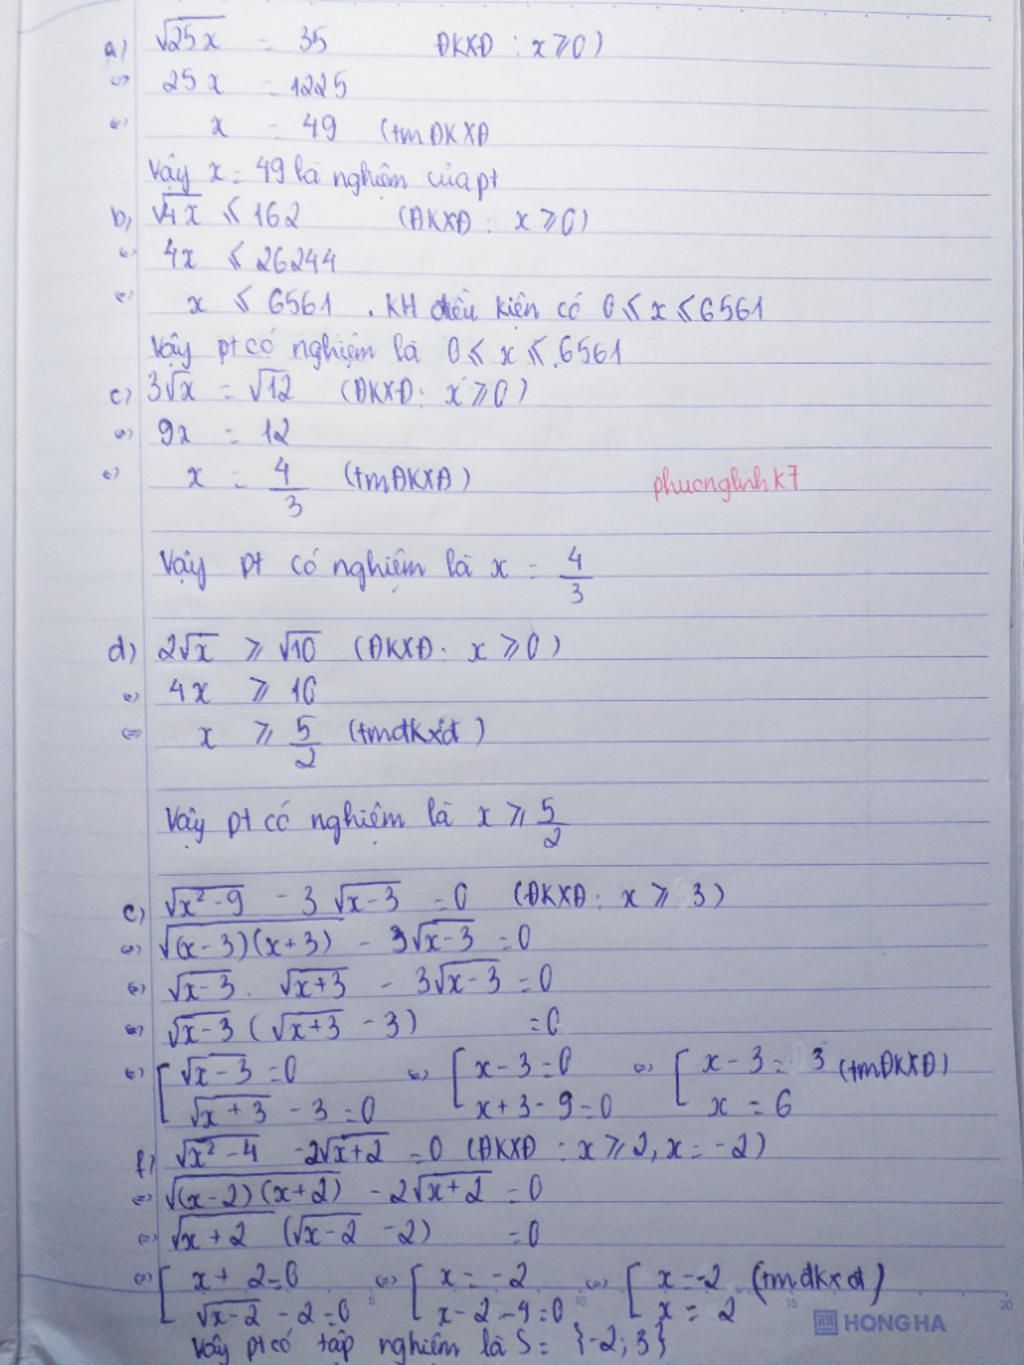 a) √25x = 35 ĐKXĐ : x ≥ 0)
<=> 25x = 1225
<=> x = 49 (tmĐKXĐ
Vậy x = 49 là nghiệm của pt
b) √4x ≤ 162 (ĐKXĐ : x ≥ 0)
<=> 4x ≤ 26244
<=> x ≤ 6561 . KH điều kiện có 0 ≤ x ≤ 6561
Vậy pt có nghiệm là 0 ≤ x ≤ 6561
c) 3√x = √12 (ĐKXĐ: x ≥ 0)
<=> 9x = 12
<=> x = 4/3 (tmĐKXĐ)
phuonglinhk7
Vậy pt có nghiệm là x = 4/3
d) 2√x ≥ √10 (ĐKXĐ: x ≥ 0)
<=> 4x ≥ 10
<=> x ≥ 5/2 (tmđkxđ)
Vậy pt có nghiệm là x ≥ 5/2
e) √x²-9 - 3√x-3 = 0 (ĐKXĐ: x ≥ 3)
<=> √(x-3)(x+3) - 3√x-3 = 0
<=> √x-3 . √x+3 - 3√x-3 = 0
<=> √x-3 (√x+3 - 3) = 0
<=> [ √x-3 = 0 <=> [ x-3 = 0 <=> [ x-3 = 3 (tmĐKXĐ)
√x+3 - 3 = 0 x+3-9 = 0 x = 6
f) √x²-4 - 2√x+2 = 0 (ĐKXĐ : x ≥ 2, x = -2)
<=> √(x-2)(x+2) - 2√x+2 = 0
<=> √x+2 (√x-2 - 2) = 0
<=> [ x + 2 = 0 <=> [ x = -2 <=> [ x = -2 (tmđkxđ)
√x-2 - 2 = 0 x-2-4 = 0 x = 2
Vậy pt có tập nghiệm là S = {-2; 3}
5 10 15 20
HONG HA